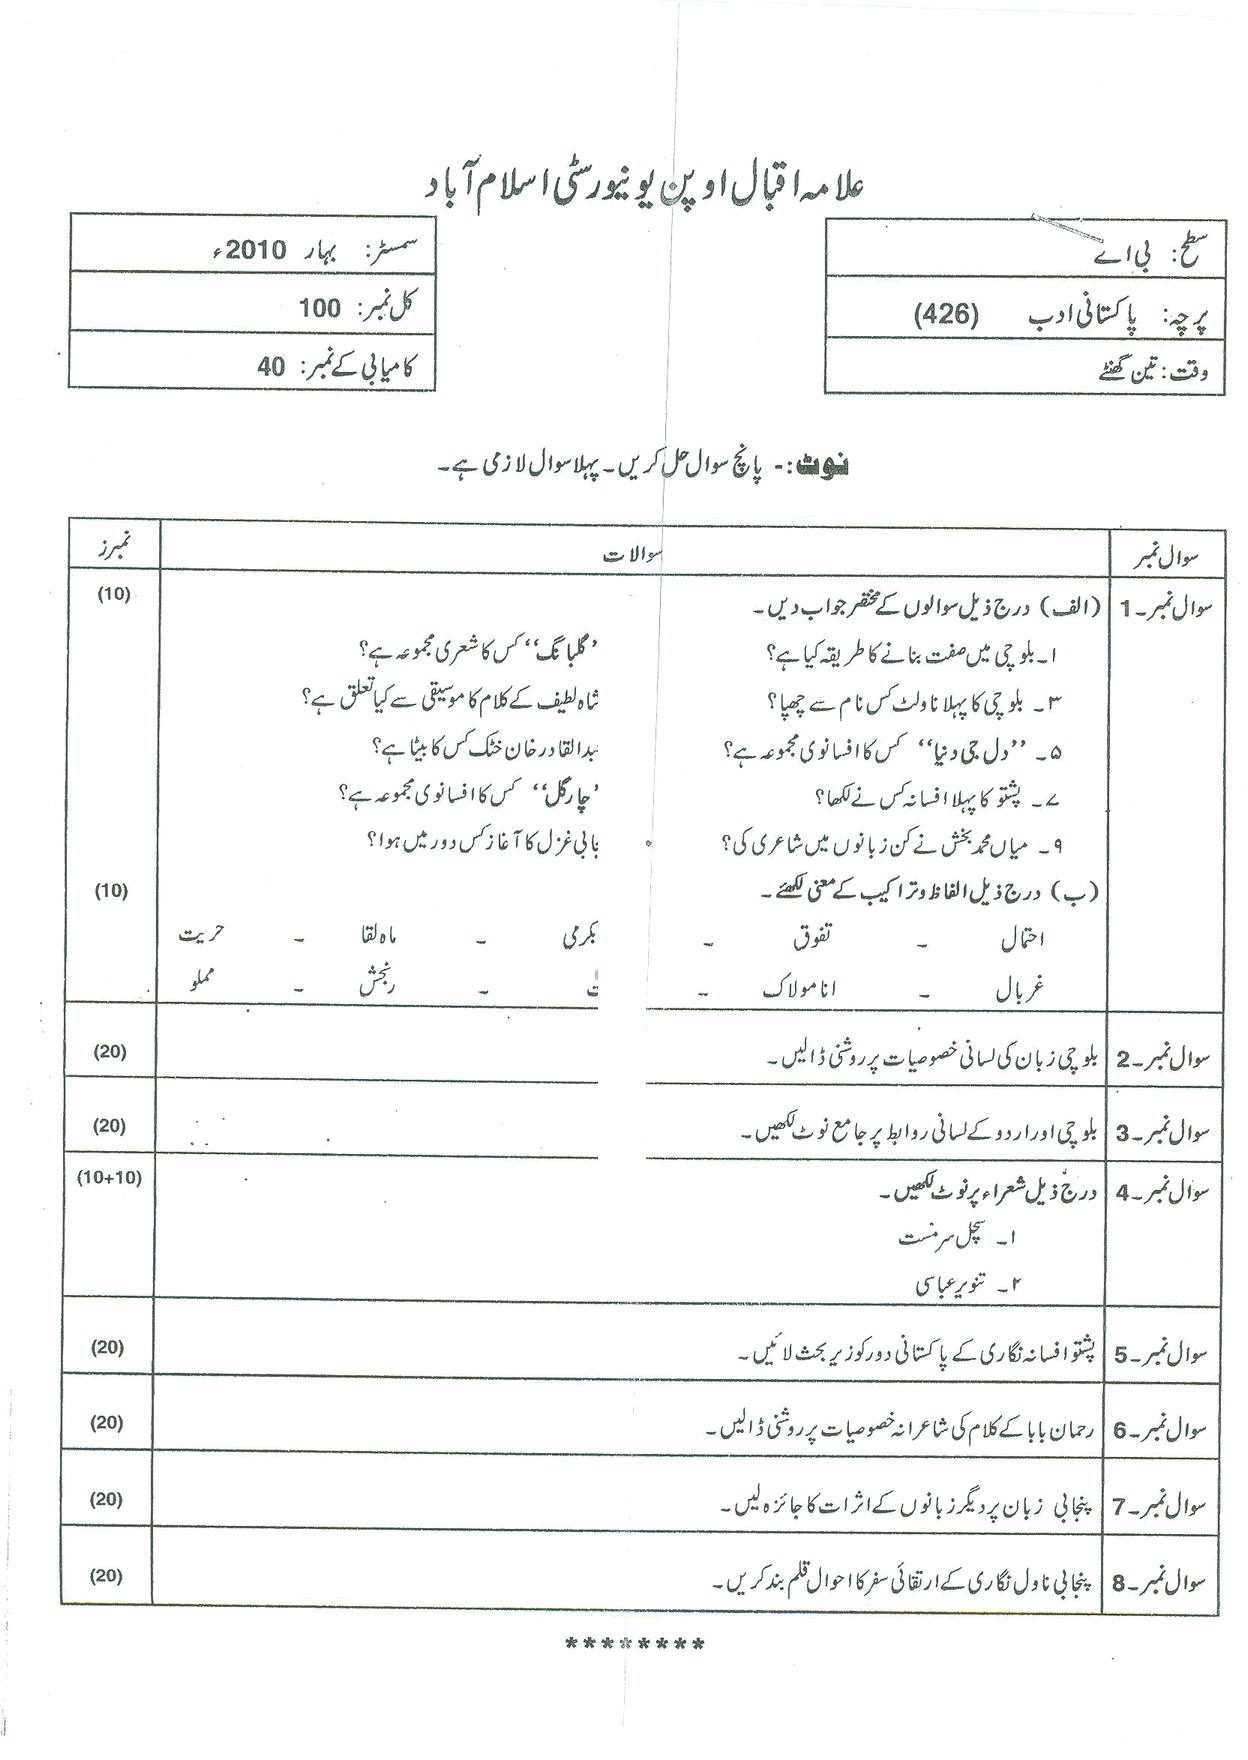 علامہ اقبال اوپن یونیورسٹی اسلام آباد
سطح: بی اے
پرچہ: پاکستانی ادب (426)
وقت: تین گھنٹے
سمسٹر: بہار 2010ء
کل نمبر: 100
کامیابی کے نمبر: 40
نوٹ:- پانچ سوال حل کریں۔ پہلا سوال لازمی ہے۔
سوال نمبر سوالات نمبرز
سوال نمبر۔1 (الف) درج ذیل سوالوں کے مختصر جواب دیں۔ (10)
۱۔ بلوچی میں صفت بنانے کا طریقہ کیا ہے؟ ‘گلبانگ‘‘ کس کا شعری مجموعہ ہے؟
۳۔ بلوچی کا پہلا ناولٹ کس نام سے چھپا؟ شاہ لطیف کے کلام کا موسیقی سے کیا تعلق ہے؟
۵۔ ’’دل جی دنیا‘‘ کس کا افسانوی مجموعہ ہے؟ بدالقادر خان خٹک کس کا بیٹا ہے؟
۷۔ پشتو کا پہلا افسانہ کس نے لکھا؟ ‘چارگل‘‘ کس کا افسانوی مجموعہ ہے؟
۹۔ میاں محمد بخش نے کن زبانوں میں شاعری کی؟ بابی غزل کا آغاز کس دور میں ہوا؟
(ب) درج ذیل الفاظ و تراکیب کے معنی لکھئے۔ (10)
احتمال ۔ تفوق ۔ بکرمی ۔ ماہ لقا ۔ حریت
غربال ۔ انا مولاک ۔ ت ۔ رنجش ۔ مملو
سوال نمبر۔2 بلوچی زبان کی لسانی خصوصیات پر روشنی ڈالیں۔ (20)
سوال نمبر۔3 بلوچی اور اردو کے لسانی روابط پر جامع نوٹ لکھیں۔ (20)
سوال نمبر۔4 درج ذیل شعراء پر نوٹ لکھیں۔ (10+10)
۱۔ سچل سرمست
۲۔ تنویر عباسی
سوال نمبر۔5 پشتو افسانہ نگاری کے پاکستانی دور کو زیر بحث لائیں۔ (20)
سوال نمبر۔6 رحمان بابا کے کلام کی شاعرانہ خصوصیات پر روشنی ڈالیں۔ (20)
سوال نمبر۔7 پنجابی زبان پر دیگر زبانوں کے اثرات کا جائزہ لیں۔ (20)
سوال نمبر۔8 پنجابی ناول نگاری کے ارتقائی سفر کا احوال قلم بند کریں۔ (20)
********